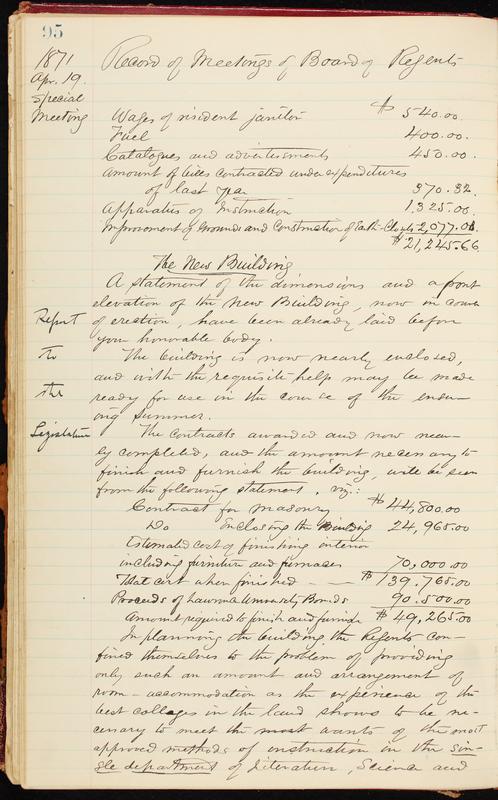 95
1871
Apr. 19.
Special
Meeting
Record of Meetings of Board of Regents
Wages of resident janitor $ 540.00.
Fuel 400.00.
Catalogues and advertisements 450.00.
Amount of bills contracted under expenditures
of last year 370.32.
Apparatus of Instruction 1,325.00.
Improvement of Grounds and Construction of Earth-Closets 2,077.01.
$ 21,245.66
The New Building
A statement of the dimensions and a front
elevation of the New Building, now in course
of erection, have been already laid before
your honorable body.
Report
To
the
Legislature
The building is now nearly enclosed,
and with the requisite help may be made
ready for use in the course of the ensu-
ing summer.
The contracts awarded and now near-
ly completed, and the amount necessary to
finish and furnish the building, will be seen
from the following statement, viz.:
Contract for masonry $ 44,800.00
Do Enclosing the Building 24,965.00
Estimated cost of finishing interior
including furniture and furnaces 70,000.00
Total cost when finished - - $ 139.765.00
Proceeds of Lawrence University Bonds 90.500.00
Amount required to finish and furnish $ 49,265.00
In planning the building the Regents con-
fined themselves to the problem of providing
only such an amount and arrangement of
room-accommodation as the experience of the
best colleges in the land shows to be ne-
cessary to meet the most wants of the most
approved methods of instruction in the sin-
gle department of Literature, Science and